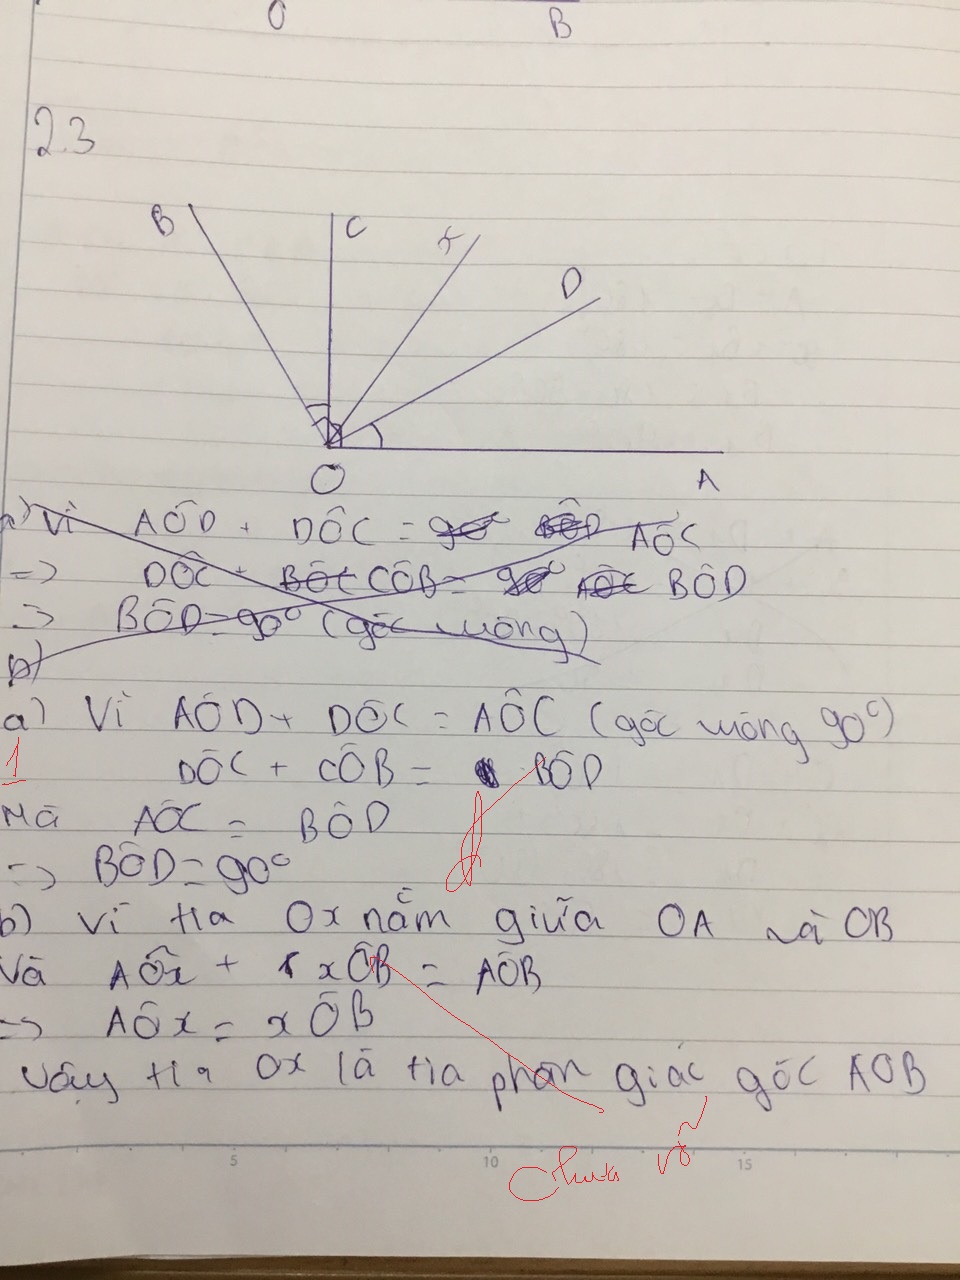 O B
2.3
B C x D
O A
a) Vì AÔD + DÔC = 90° BÔD AÔC
=> DÔC + BÔC CÔB = 90° AÔC BÔD
=> BÔD = 90° (góc vuông)
b)
a) Vì AÔD + DÔC = AÔC (góc vuông 90°)
1
DÔC + CÔB = BÔD
Mà AÔC = BÔD
=> BÔD = 90°
b) Vì tia Ox nằm giữa OA và OB
Và AÔx + xÔB = AÔB
=> AÔx = xÔB
Vậy tia Ox là tia phân giác góc AOB
Chưa rõ
5 10 15